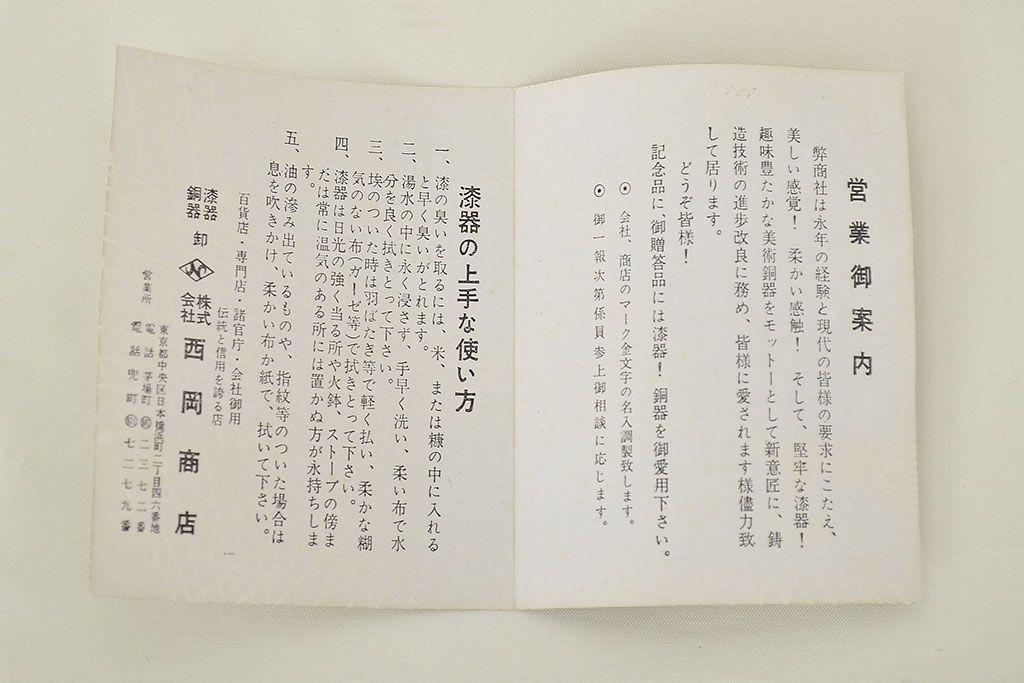 営業御案内
弊商社は永年の経験と現代の皆様の要求にこたえ、
美しい感覚！　柔かい感触！　そして、堅牢な漆器！
趣味豊たかな美術銅器をモットーとして新意匠に、鋳
造技術の進歩改良に務め、皆様に愛されます様儘力致
して居ります。
どうぞ皆様！
記念品に、御贈答品には漆器！　銅器を御愛用下さい。
⦿　会社、商店のマーク金文字の名入調製致します。
⦿　御一報次第係員参上御相談に応じます。
漆器の上手な使い方
一、漆の臭いを取るには、米、または糠の中に入れる
と早く臭いがとれます。
二、湯水の中に永く浸さず、手早く洗い、柔い布で水
分を良く拭きとって下さい。
三、埃のついた時は羽ばたき等で軽く払い、柔かな糊
気のない布(ガーゼ等)で拭きとって下さい。
四、漆器は日光の強く当る所や火鉢、ストーブの傍ま
たは常に温気のある所には置かぬ方が永持ちしま
す。
五、油の滲み出ているものや、指紋等のついた場合は
息を吹きかけ、柔かい布か紙で、拭いて下さい。
百貨店・専門店・諸官庁・会社御用
伝統と信用を誇る店
漆器
銅器
卸
株式
会社
西岡商店
営業所
東京都中央区日本橋浜町二丁目四六番地
電話　茅場町　二三七二番
電話　兜町　七二七九番